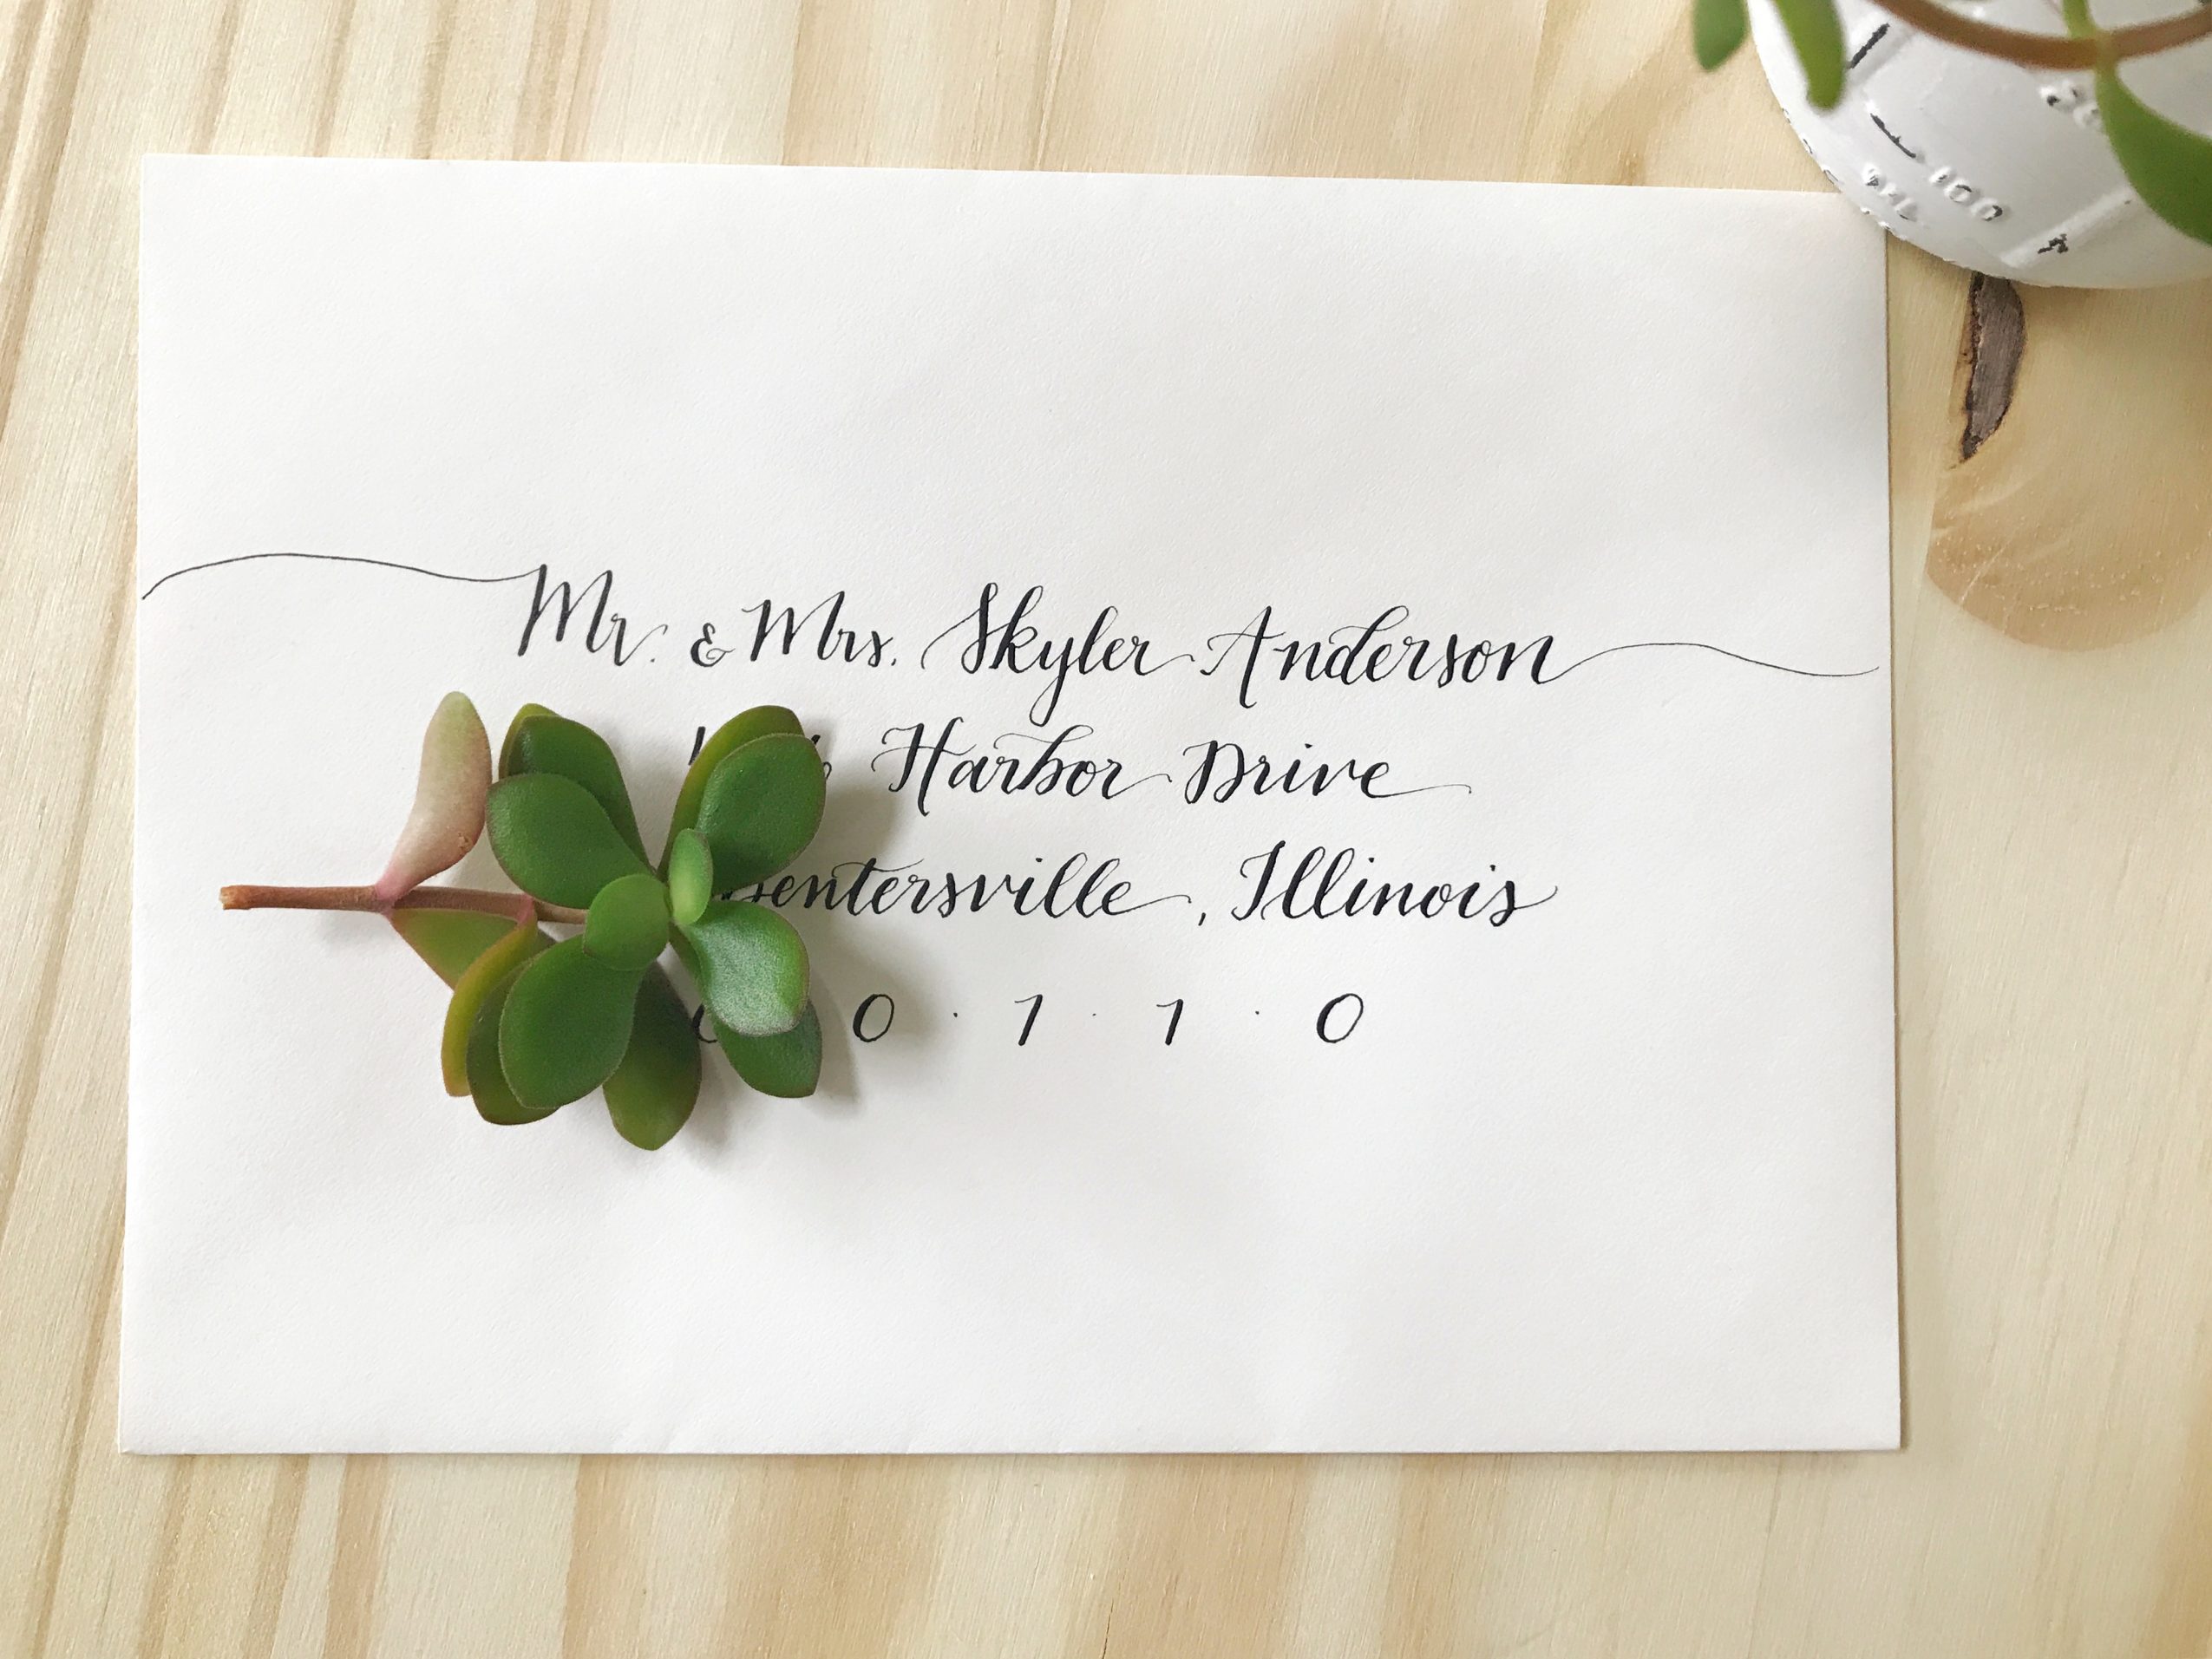 100
Mr. & Mrs. Skyler Anderson
Harbor Drive
entersville, Illinois
0 · 1 · 1 · 0